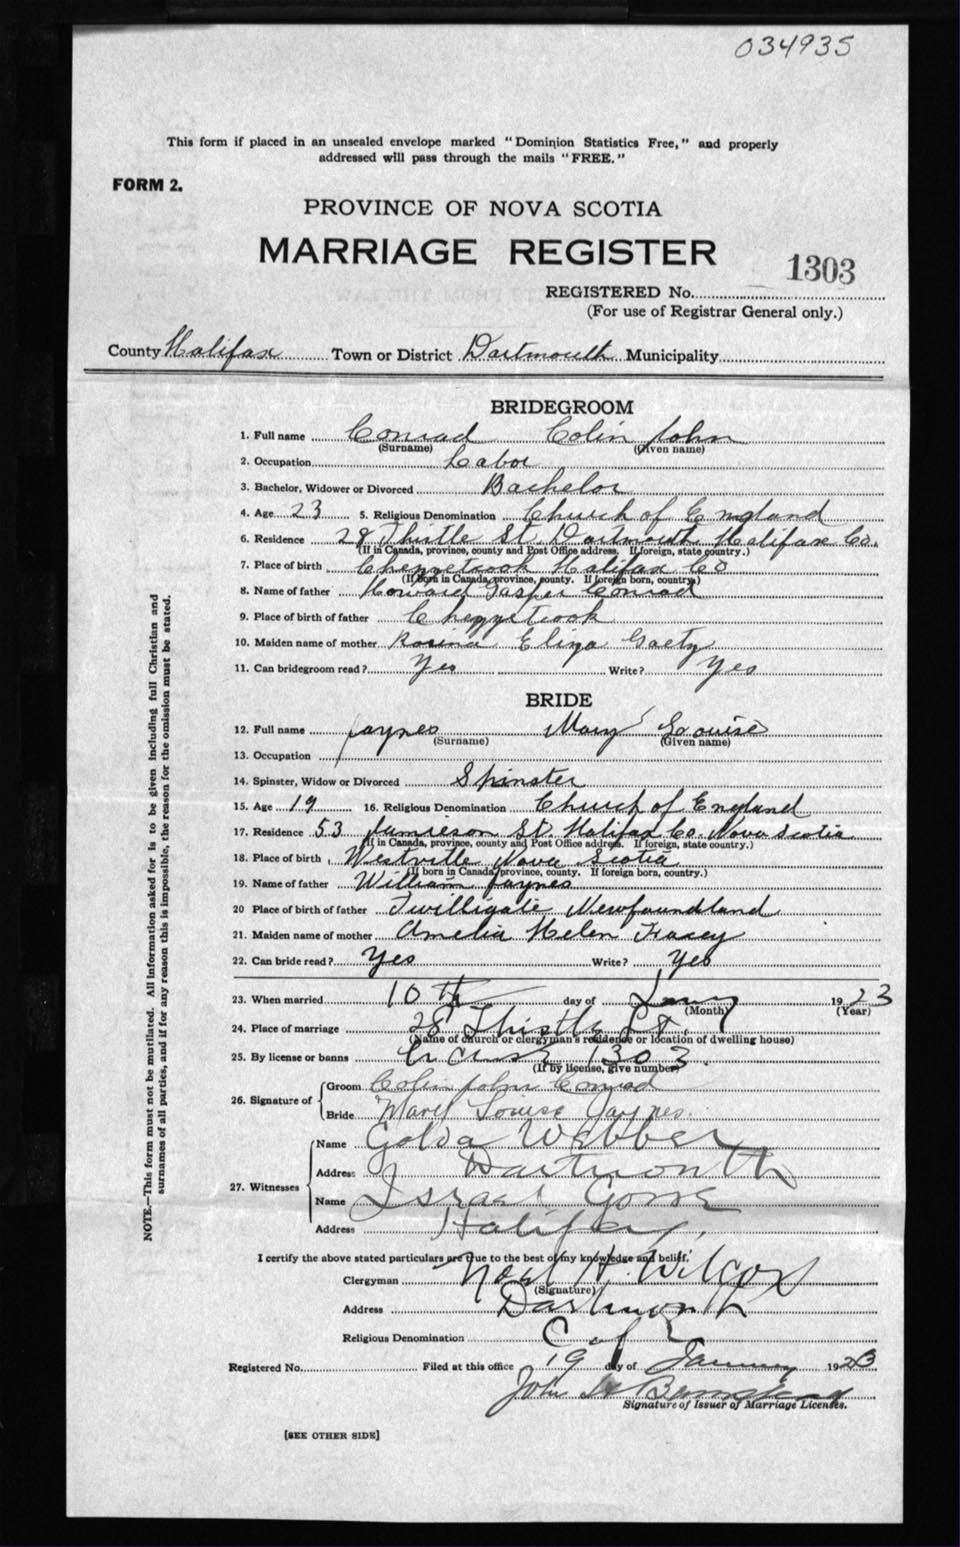 034935
This form if placed in an unsealed envelope marked "Dominion Statistics Free," and properly
addressed will pass through the mails "FREE."
FORM 2.
PROVINCE OF NOVA SCOTIA
MARRIAGE REGISTER
1303
REGISTERED No.
(For use of Registrar General only.)
County Halifax Town or District Dartmouth Municipality
BRIDEGROOM
1. Full name Conrad Colin John
(Surname) (Given name)
2. Occupation Labor
3. Bachelor, Widower or Divorced Bachelor
4. Age 23 5. Religious Denomination Church of England
6. Residence 28 Thistle St. Dartmouth Halifax Co.
(If in Canada, province, county and Post Office address. If foreign, state country.)
7. Place of birth Chezzetcook Halifax Co
(If born in Canada, province, county. If foreign born, country)
8. Name of father Howard Jasper Conrad
9. Place of birth of father Chezzetcook
10. Maiden name of mother Rosina Eliza Gaetz
11. Can bridegroom read? Yes Write? Yes
BRIDE
12. Full name Jaynes Mary Louise
(Surname) (Given name)
13. Occupation
14. Spinster, Widow or Divorced Spinster
15. Age 19 16. Religious Denomination Church of England
17. Residence 53 Jamieson St. Halifax Co. Nova Scotia
(If in Canada, province, county and Post Office address. If foreign, state country.)
18. Place of birth Westville Nova Scotia
(If born in Canada, province, county. If foreign born, country.)
19. Name of father William Jaynes
20 Place of birth of father Twilligate Newfoundland
21. Maiden name of mother Amelia Helen Tracey
22. Can bride read? Yes Write? Yes
23. When married 10th day of Jany 1923
(Month) (Year)
24. Place of marriage 28 Thistle St.
(Name of church or clergyman's residence or location of dwelling house)
25. By license or banns License 1303.
(If by license, give number)
26. Signature of
Groom Colin John Conrad
Bride Mary Louise Jaynes.
27. Witnesses
Name Golda Webber
Address Dartmouth
Name Israel Goss
Address Halifax,
I certify the above stated particulars are true to the best of my knowledge and belief.
Clergyman Noel H. Wilcox
(Signature)
Address Dartmouth
Religious Denomination C of E
Registered No. Filed at this office 19 day of January 1923
John
Signature of Issuer of Marriage Licenses.
[SEE OTHER SIDE]
NOTE.—This form must not be mutilated. All information asked for is to be given including full Christian and
surnames of all parties, and if for any reason this is impossible, the reason for the omission must be stated.